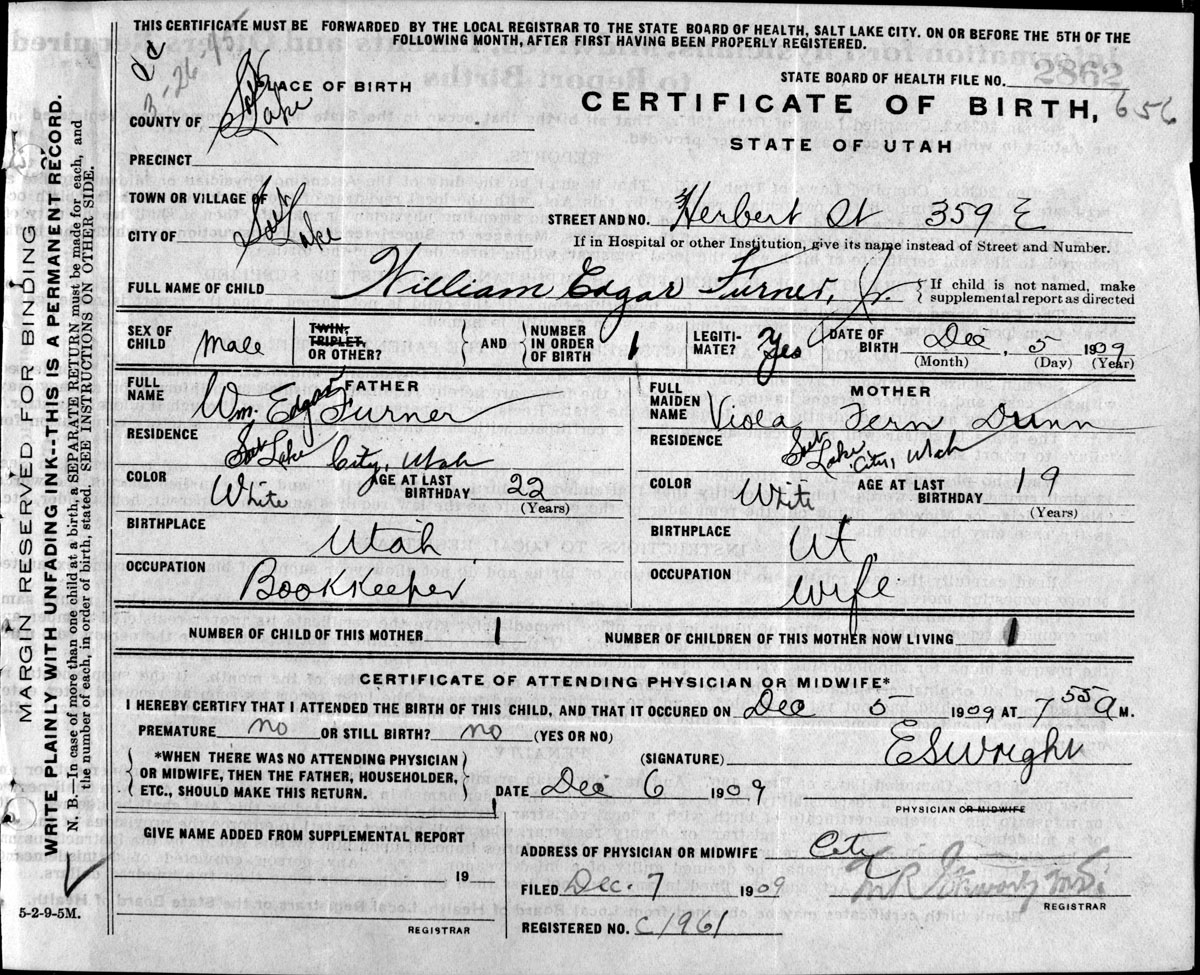 THIS CERTIFICATE MUST BE FORWARDED BY THE LOCAL REGISTRAR TO THE STATE BOARD OF HEALTH, SALT LAKE CITY. ON OR BEFORE THE 5TH OF THE
FOLLOWING MONTH, AFTER FIRST HAVING BEEN PROPERLY REGISTERED.
PLACE OF BIRTH
STATE BOARD OF HEALTH FILE NO. 2862
CERTIFICATE OF BIRTH, 656
COUNTY OF Salt Lake
STATE OF UTAH
PRECINCT
TOWN OR VILLAGE OF
STREET AND NO. Herbert St 359 E
CITY OF Salt Lake
If in Hospital or other Institution, give its name instead of Street and Number.
FULL NAME OF CHILD William Edgar Turner, Jr. If child is not named, make
supplemental report as directed
SEX OF CHILD Male TWIN, TRIPLET, OR OTHER? AND NUMBER IN ORDER OF BIRTH 1 LEGITI-MATE? Yes DATE OF BIRTH Dec 5 1909
(Month) (Day) (Year)
FULL NAME FATHER Wm. Edgar Turner
FULL MAIDEN NAME MOTHER Viola Fern Dunn
RESIDENCE Salt Lake City, Utah
RESIDENCE Salt Lake City, Utah
COLOR White AGE AT LAST BIRTHDAY 22 (Years)
COLOR Writ AGE AT LAST BIRTHDAY 19 (Years)
BIRTHPLACE Utah
BIRTHPLACE Ut,
OCCUPATION Bookkeeper
OCCUPATION Wife
NUMBER OF CHILD OF THIS MOTHER 1 NUMBER OF CHILDREN OF THIS MOTHER NOW LIVING 1
CERTIFICATE OF ATTENDING PHYSICIAN OR MIDWIFE*
I HEREBY CERTIFY THAT I ATTENDED THE BIRTH OF THIS CHILD, AND THAT IT OCCURED ON Dec 5 1909 AT 7 55 A M.
PREMATURE no OR STILL BIRTH? no (YES OR NO)
*WHEN THERE WAS NO ATTENDING PHYSICIAN
OR MIDWIFE, THEN THE FATHER, HOUSEHOLDER,
ETC., SHOULD MAKE THIS RETURN.
(SIGNATURE) E S Wright
DATE Dec 6 1909
PHYSICIAN OR MIDWIFE
GIVE NAME ADDED FROM SUPPLEMENTAL REPORT
19
REGISTRAR
ADDRESS OF PHYSICIAN OR MIDWIFE City
FILED Dec. 7 1909
REGISTRAR
REGISTERED NO. C1961
5-2-9-5M.
MARGIN RESERVED FOR BINDING
WRITE PLAINLY WITH UNFADING INK--THIS IS A PERMANENT RECORD.
N. B.—In case of more than one child at a birth, a SEPARATE RETURN must be made for each, and
the number of each, in order of birth, stated. SEE INSTRUCTIONS ON OTHER SIDE.